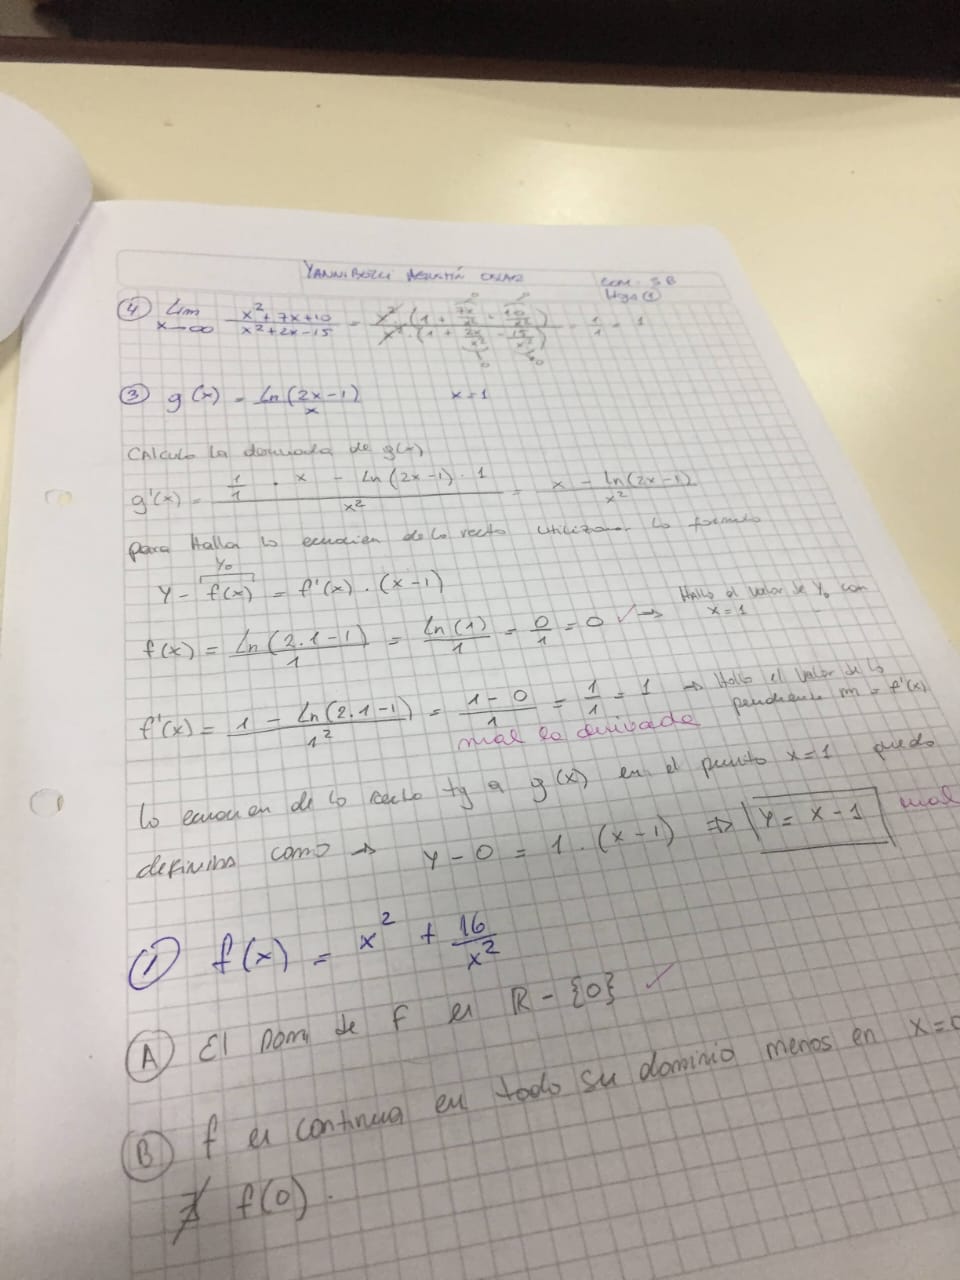 com: 5B
Hoja ①
④ Lim x→∞ (x²+7x+10)/(x²+2x-15) = x²·(1 + 7x/x² + 10/x²)/x²·(1 + 2x/x² - 15/x²) = 1/1 = 1
③ g(x) = Ln(2x-1)/x x=1
CALCULO La derivada de g(x)
g'(x) = (1/1 · x - Ln(2x-1) · 1)/x² = x - Ln(2x-1)/x²
para Halla la ecuacion de la recta utilizamos la formula
Y₀
Y - f(x) = f'(x) · (x-1)
f(x) = Ln(2.1-1)/1 = Ln(1)/1 = 0/1 = 0 ✓ → Hallo el valor de Y₀ con x=1
f'(x) = 1 - Ln(2.1-1)/1² = (1-0)/1 = 1/1 = 1 → Hallo el valor de la pendiente m = f'(x)
mal la derivada
la ecuacion de la recta tg a g(x) en el punto x=1 queda
definida como → Y - 0 = 1 . (x-1) ⇒ Y = x - 1 mal
① f(x) = x² + 16/x²
Ⓐ El Dom de f es ℝ - {0} ✓
Ⓑ f es continua en todo su dominio menos en x=0
∄ f(0).